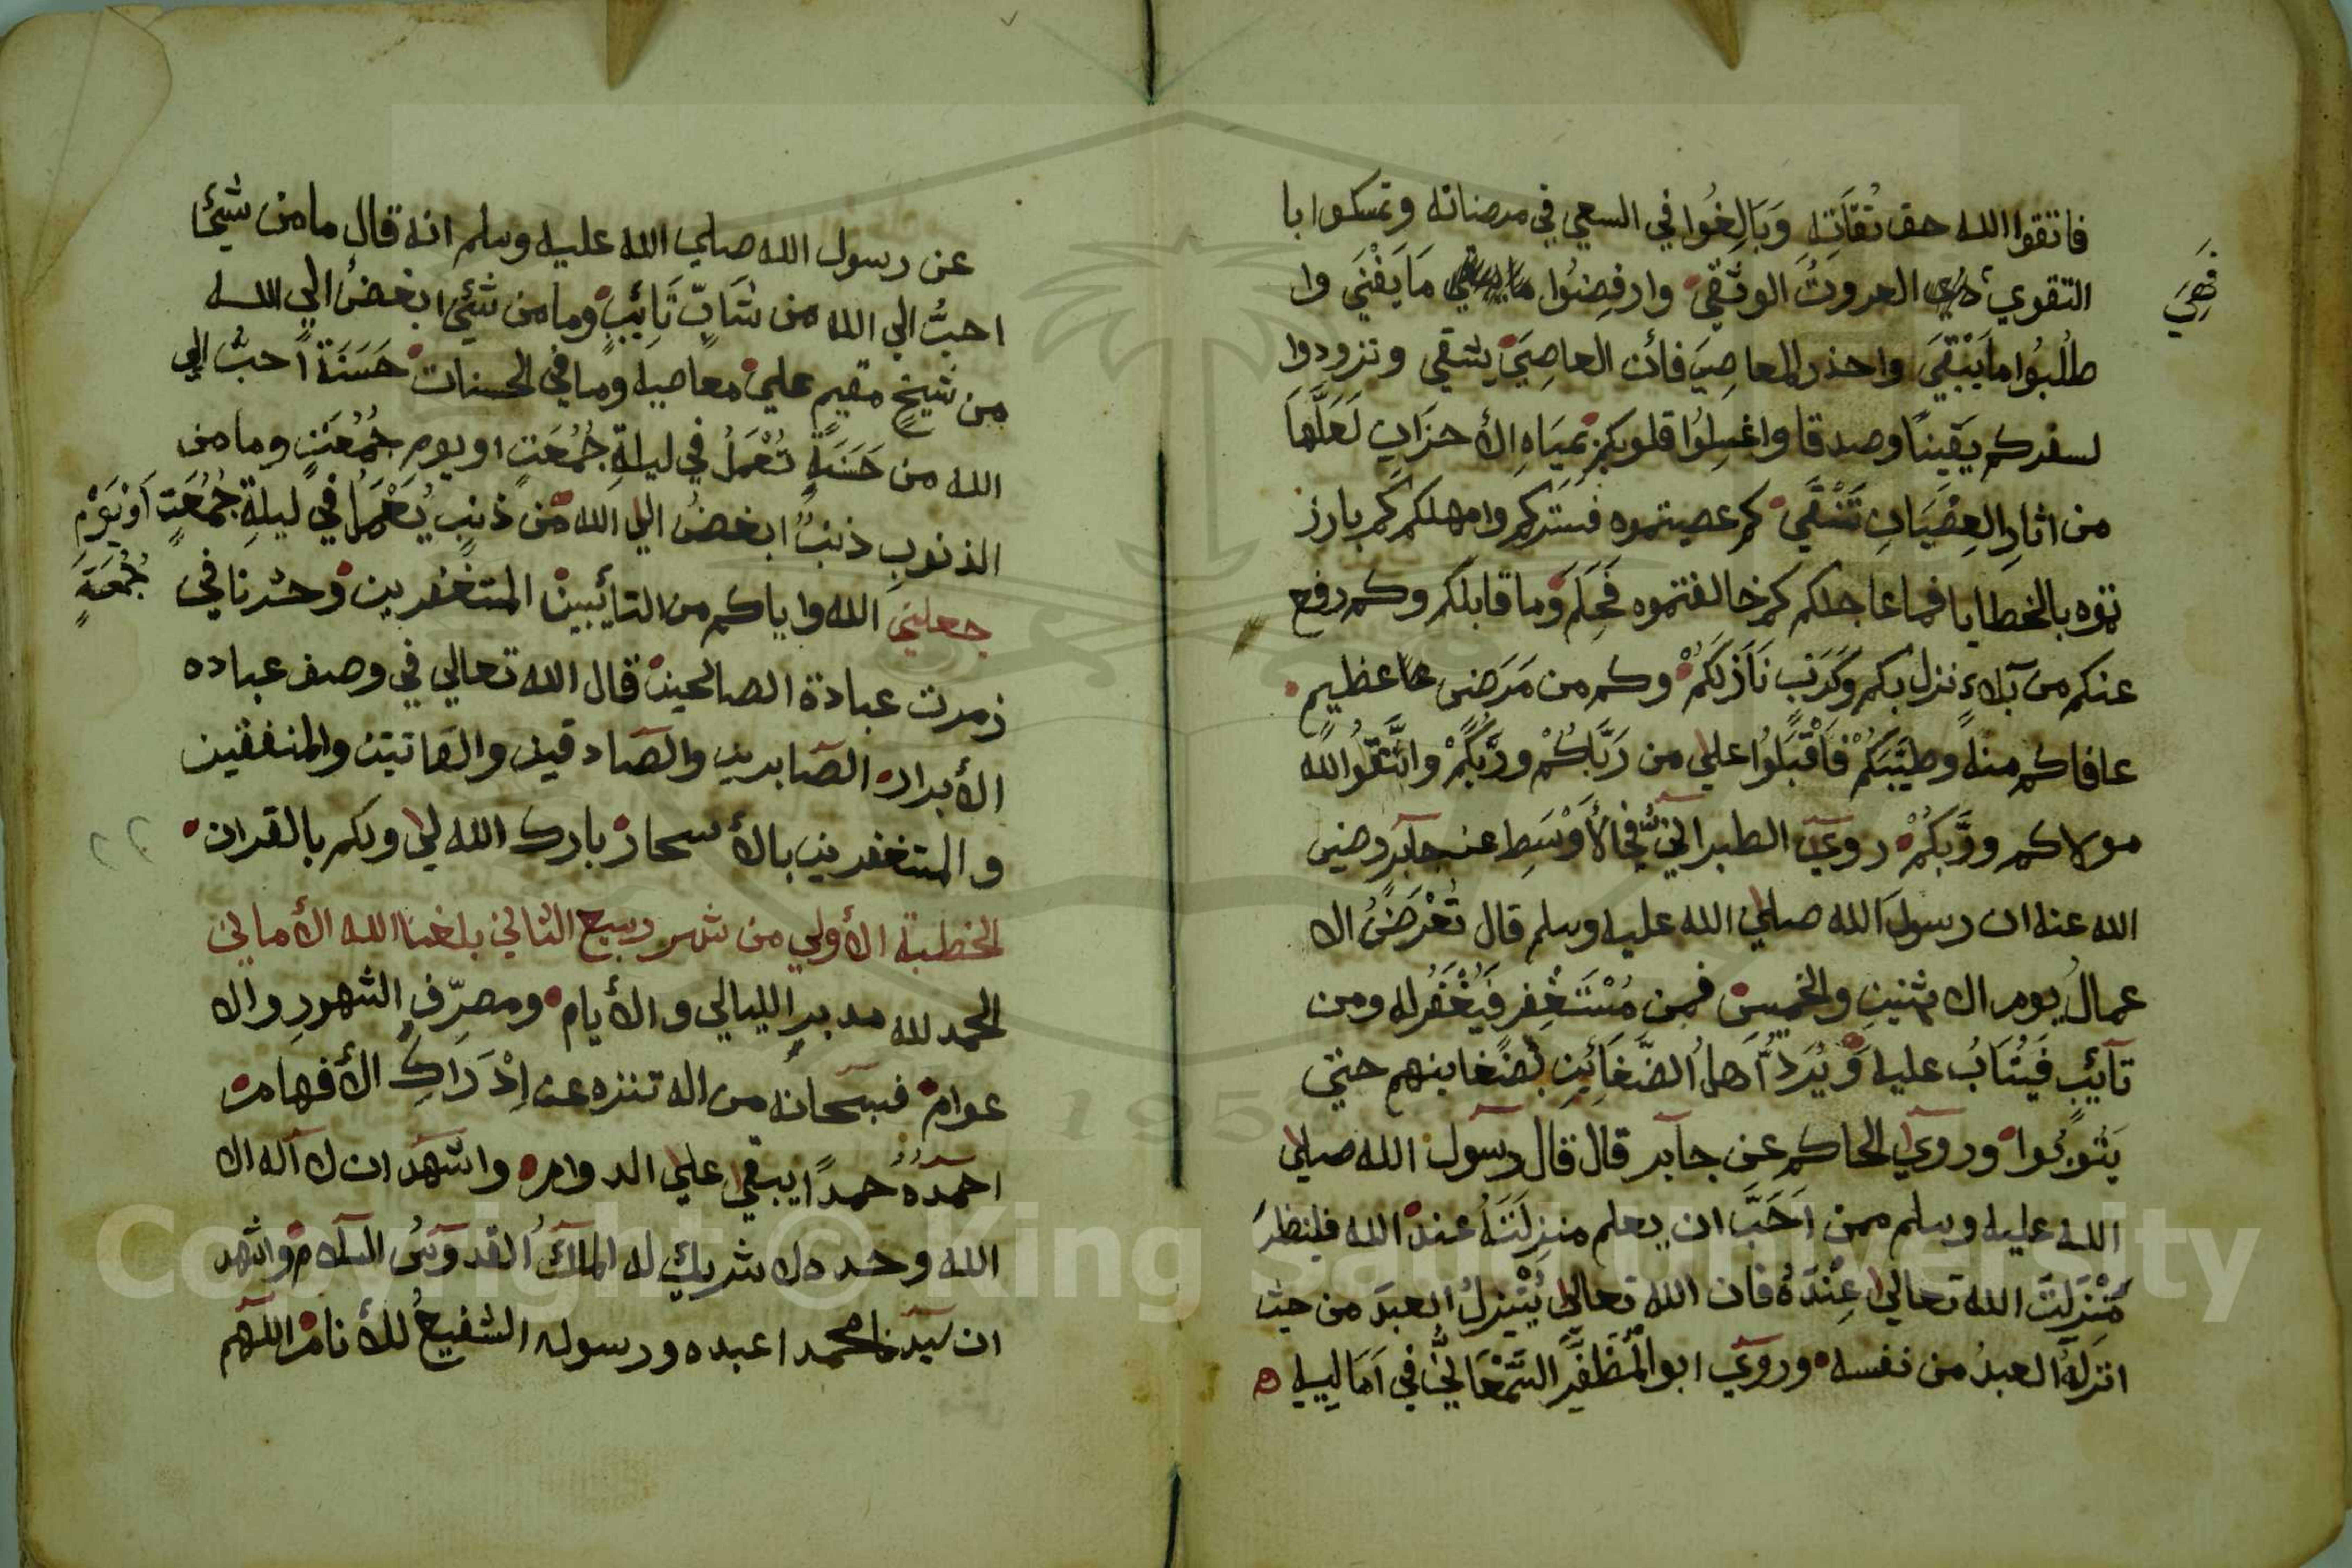 فاتقوا الله حق تُقَاتِهِ وَبَالِغُوا في السعي في مرضاته وتمسكوا با
التقوي فَهِيَ العروتُ الوثقي وارفِضُوا مَا يَفْنَي وا
طلُبُوا مَا يَبْقَي واحذر المعاصِيَ فأن العاصِيَ يشقي وتزودوا
لسفركم يَقِينًا وصدقا واغسِلُوا قلوبكم بِمِيَاهِ الأحزان لَعَلَّهَا
من اثارِ العِصْيَانِ تَنْقَي كم عصيتموه فستركم وامهلكم كم بارز
تموه بالخطايا فما عاجلكم كم خالفتموه فَحَلِمَ وما قابلكم وكم رفع
عنكم من بَلاءٍ نزل بكم وكَرْبٍ نَازَلَكُمْ وكم من مَرَضٍ عظيم
عافاكم منه وطيَّبَكُمْ فَأَقْبِلُوا علي من رَبَّاكُمْ ورَبِّكُمْ واتَّقُوا الله
مولاكم ورَبَّكُمْ روي الطبراني في الأَوْسَطِ عن جابر رضي
الله عنه ان رسول الله صلي الله عليه وسلم قال تُعْرَضُ الا
عمالُ يوم الاثنين والخميس فمن مُسْتَغْفِرٍ فَيُغْفَرُ له ومن
تَآئِبٍ فَيُتَابُ عليه وَيُرَدُّ أَهلُ الضَّغَائِنِ بضغاينهم حتي
يَتُوبُوا وروي الحاكم عن جابر قال قال رسول الله صلي
الله عليه وسلم ممن اَحَبَّ ان يعلم منزِلَتَهُ عند الله فلينظرَ
مَنْزِلَتَ الله تعالي عِنْدَهُ فان الله تعالي يُنْزِلُ العبدَ من حيث
انزلهُ العبدُ من نفسه وروي ابو الُمظَفَّرِ السَّمْعَانِيُّ في اَمَالِيِه
فَهِيَ
عن رسول الله صلي الله عليه وسلم انه قال ما من شيئًا
احبُّ الي الله من شَابٍّ تَائِبٍ وما من شئيًا ابغضُ الي الله
من شيخٍ مقيمٍ علي معاصيه وما في الحسنات حَسَنَةً احبُّ الي
الله من حَسَنَةٍ تُعْمَلُ في ليلةِ جُمُعَتٍ او يومِ جُمُعَتٍ وما من
الذنوبِ ذنبٌ ابغضُ الي الله من ذنبٍ يُعْمَلُ في ليلةِ جُمُعَتٍ اَوْيَوْمِ
جُمُعَةٍ
جعلني الله واياكم من التأيبين المتغفرين وحشرنا في
زمرت عبادة الصالحين قال الله تعالي في وصف عباده
الأبرار الصابرين والصادقين والقانتين والمنفقين
والمتغفرين بالأسحار بارك الله لي ولكم بالقران
الخطبة الأولي من شهر ربيع الثاني بلغنا الله الأماني
الحمد لله مدبرِ الليالي والأيام ومصرِّفِ الشهورِ والا
عوام فسبحانه من اله تنزه عن اِدْرَاكِ الأفهام
احمدهُ حمدًا يبقي علي الدوام واشهد ان لا اله الا
الله وحده لا شريك له الملكُ القدوسُ السلام واشهد
ان سيدنا محمدا عبده ورسوله الشفيعُ للأنام اللهم
Copyright © King Saud University
195